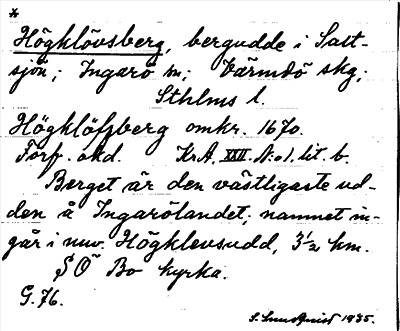 *
Högklövsberg, bergudde i Salt-
sjön; Ingarö sn; Värmdö skg;
Sthlms l.
Högklöfzberg omkr. 1670.
Förf. okd. KrA. XXII. N:o 1. lit. b.
Berget är den västligaste ud-
den å Ingarölandet; namnet in-
går i nuv. Högklevsudd, 3½ km.
SO Bo kyrka.
G. 76.
S. Lundqvist 1935.